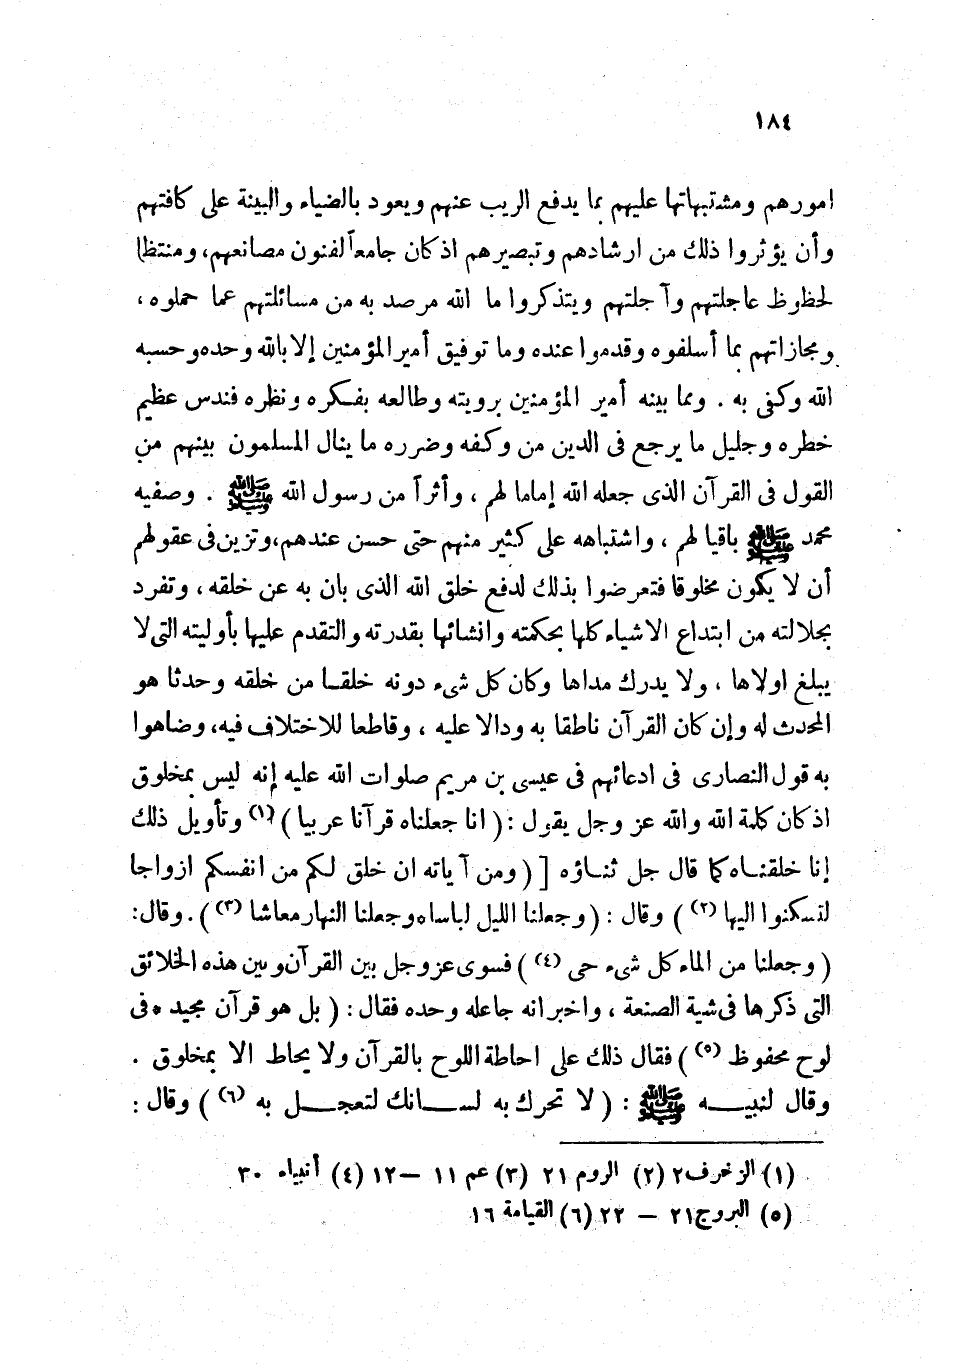 ١٨٤
امورهم ومشتبهاتها عليهم بما يدفع الريب عنهم ويعود بالضياء والبينة على كافتهم
وأن يؤثروا ذلك من ارشادهم وتبصيرهم اذ كان جامعاً لفنون مصانعهم، ومنتظا
لحظوظ عاجلتهم وآجلتهم ويتذكروا ما الله مرصد به من مسائلتهم عما حملوه ،
ومجازاتهم بما أسلفوه وقدموا عنده وما توفيق أمير المؤمنين إلا بالله وحده وحسبه
الله وكفى به . ومما بينه أمير المؤمنين برويته وطالعه بفكره ونظره فندس عظيم
خطره وجليل ما يرجع فى الدين من وكفه وضرره ما ينال المسلمون بينهم من
القول فى القرآن الذى جعله الله إماما لهم ، وأثراً من رسول الله ﷺ . وصفيه
محمد ﷺ باقيا لهم ، واشتباهه على كثير منهم حتى حسن عندهم، وتزين فى عقولهم
أن لا يكون مخلوقا فتعرضوا بذلك لدفع خلق الله الذى بان به عن خلقه ، وتفرد
بجلالته من ابتداع الاشياء كلها بحكمته وانشائها بقدرته والتقدم عليها بأوليته التى لا
يبلغ اولاها ، ولا يدرك مداها وكان كل شىء دونه خلقا من خلقه وحدثا هو
المحدث له وإن كان القرآن ناطقا به ودالا عليه ، وقاطعا للاختلاف فيه، وضاهوا
به قول النصارى فى ادعائهم فى عيسى بن مريم صلوات الله عليه إنه ليس بمخلوق
اذ كان كلمة الله والله عز وجل يقول : ( انا جعلناه قرآنا عربيا ) (١) وتأويل ذلك
إنا خلقناه كما قال جل ثناؤه [ ( ومن آياته ان خلق لكم من انفسكم ازواجا
لتسكنوا اليها (٢) ) وقال : ( وجعلنا الليل لباسا ه وجعلنا النهار معاشا (٣) ) . وقال:
( وجعلنا من الماء كل شىء حى (٤) ) فسوى عز وجل بين القرآن وبين هذه الخلائق
التى ذكرها فى شية الصنعة ، واخبر انه جاعله وحده فقال : ( بل هو قرآن مجيد ه فى
لوح محفوظ (٥) ) فقال ذلك على احاطة اللوح بالقرآن ولا يحاط الا بمخلوق .
وقال لنبيــه ﷺ : ( لا تحرك به لســانك لتعجــل به (٦) ) وقال :
(١) الزخرف ٢ (٢) الروم ٢١ (٣) عم ١١ – ١٢ (٤) أنبياء ٣٠
(٥) البروج ٢١ – ٢٢ (٦) القيامة ١٦